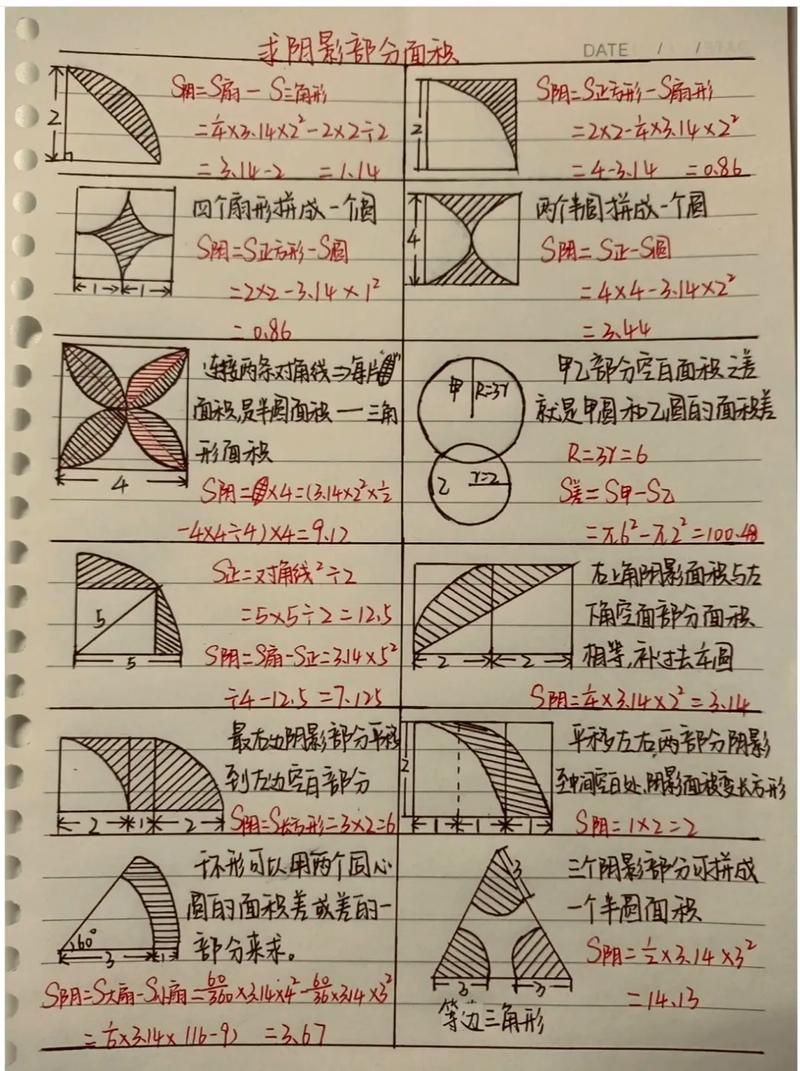 求阴影部分面积
DATE / /
2
S阴=S扇-S三角形
=¼×3.14×2²-2×2÷2
=3.14-2 =1.14
2
S阴=S正方形-S扇形
=2×2-¼×3.14×2²
=4-3.14 =0.86
1 1
四个扇形拼成一个圆
S阴=S正方形-S圆
=2×2-3.14×1²
=0.86
4
两个半圆拼成一个圆
S阴=S正-S圆
=4×4-3.14×2²
=3.44
4
连接两条对角线⇒每片
面积是半圆面积一三角
形面积
S阴= ×4=(3.14×2²×½
-4×4÷4)×4=9.12
甲 R=3r
乙 r=2
甲乙部分空白面积之差
就是甲圆和乙圆的面积差
R=3r=6
S差=S甲-S乙
=π6²-π2²=100.48
5
5
S正=对角线²÷2
=5×5÷2=12.5
S阴=S扇-S正=3.14×5²
÷4-12.5=7.125
2 2
右上角阴影面积与左
下角空面部分面积
相等,补过去车圆
S阴=¼×3.14×2²=3.14
2 1 2
最右边阴影部分平移
到左边空白部分
S阴=S长方形=3×2=6
2
1 1 1
平移左右两部分阴影
至中间空白处,阴影面积变长方形
S阴=1×2=2
60°
3 1
干环形可以用两个同心
圆的面积差或差的一
部分来求。
S阴=S大扇-S小扇=60/360×3.14×4²-60/36×3.14×3²
=⅙×3.14×(16-9) =3.67
3
3 3
等边三角形
三个阴影部分可拼成
一个半圆面积
S阴=½×3.14×3²
=14.13